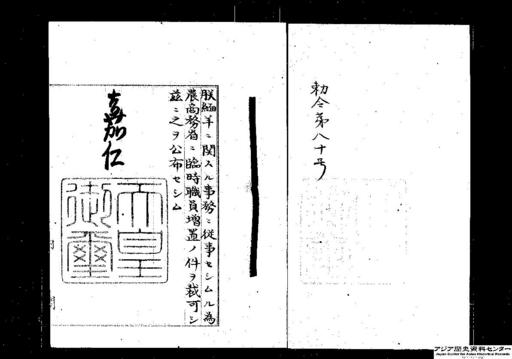 勅令第八十号
朕緬羊ニ関スル事務ニ従事セシムル為
農商務省ニ臨時職員増置ノ件ヲ裁可シ
茲ニ之ヲ公布セシム
嘉仁
天皇
御璽
アジア歴史資料センター
Japan Center for Asian Historical Records